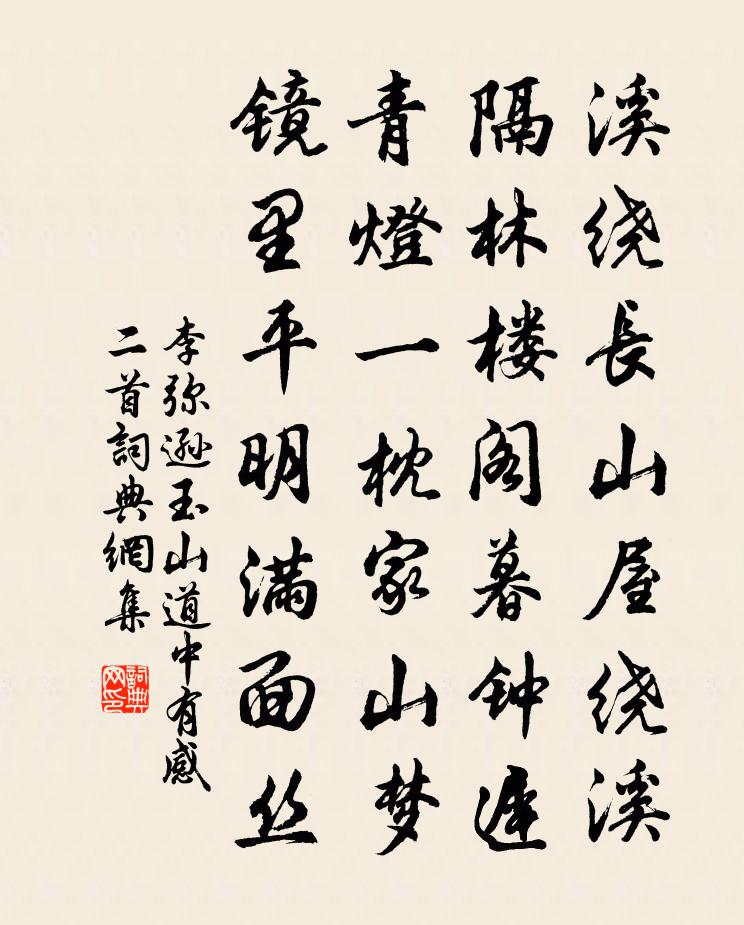 溪绕長山屋绕溪
隔林楼阁暮钟遲
青燈一枕家山梦
镜里平明满面丝
李弥遜玉山道中有感
二首詞典網集
詞典
网印